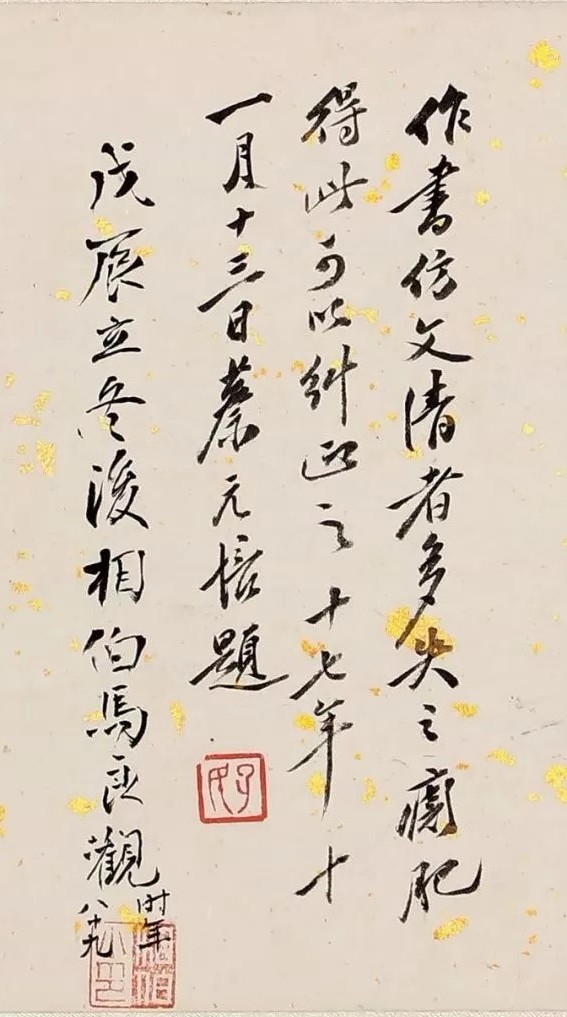 作書仿文清者多失之癡肥
得此可以糾之十七年十
一月十三日蔡元培題
孑民
戊辰立冬後相伯馬良觀
時年
八十九